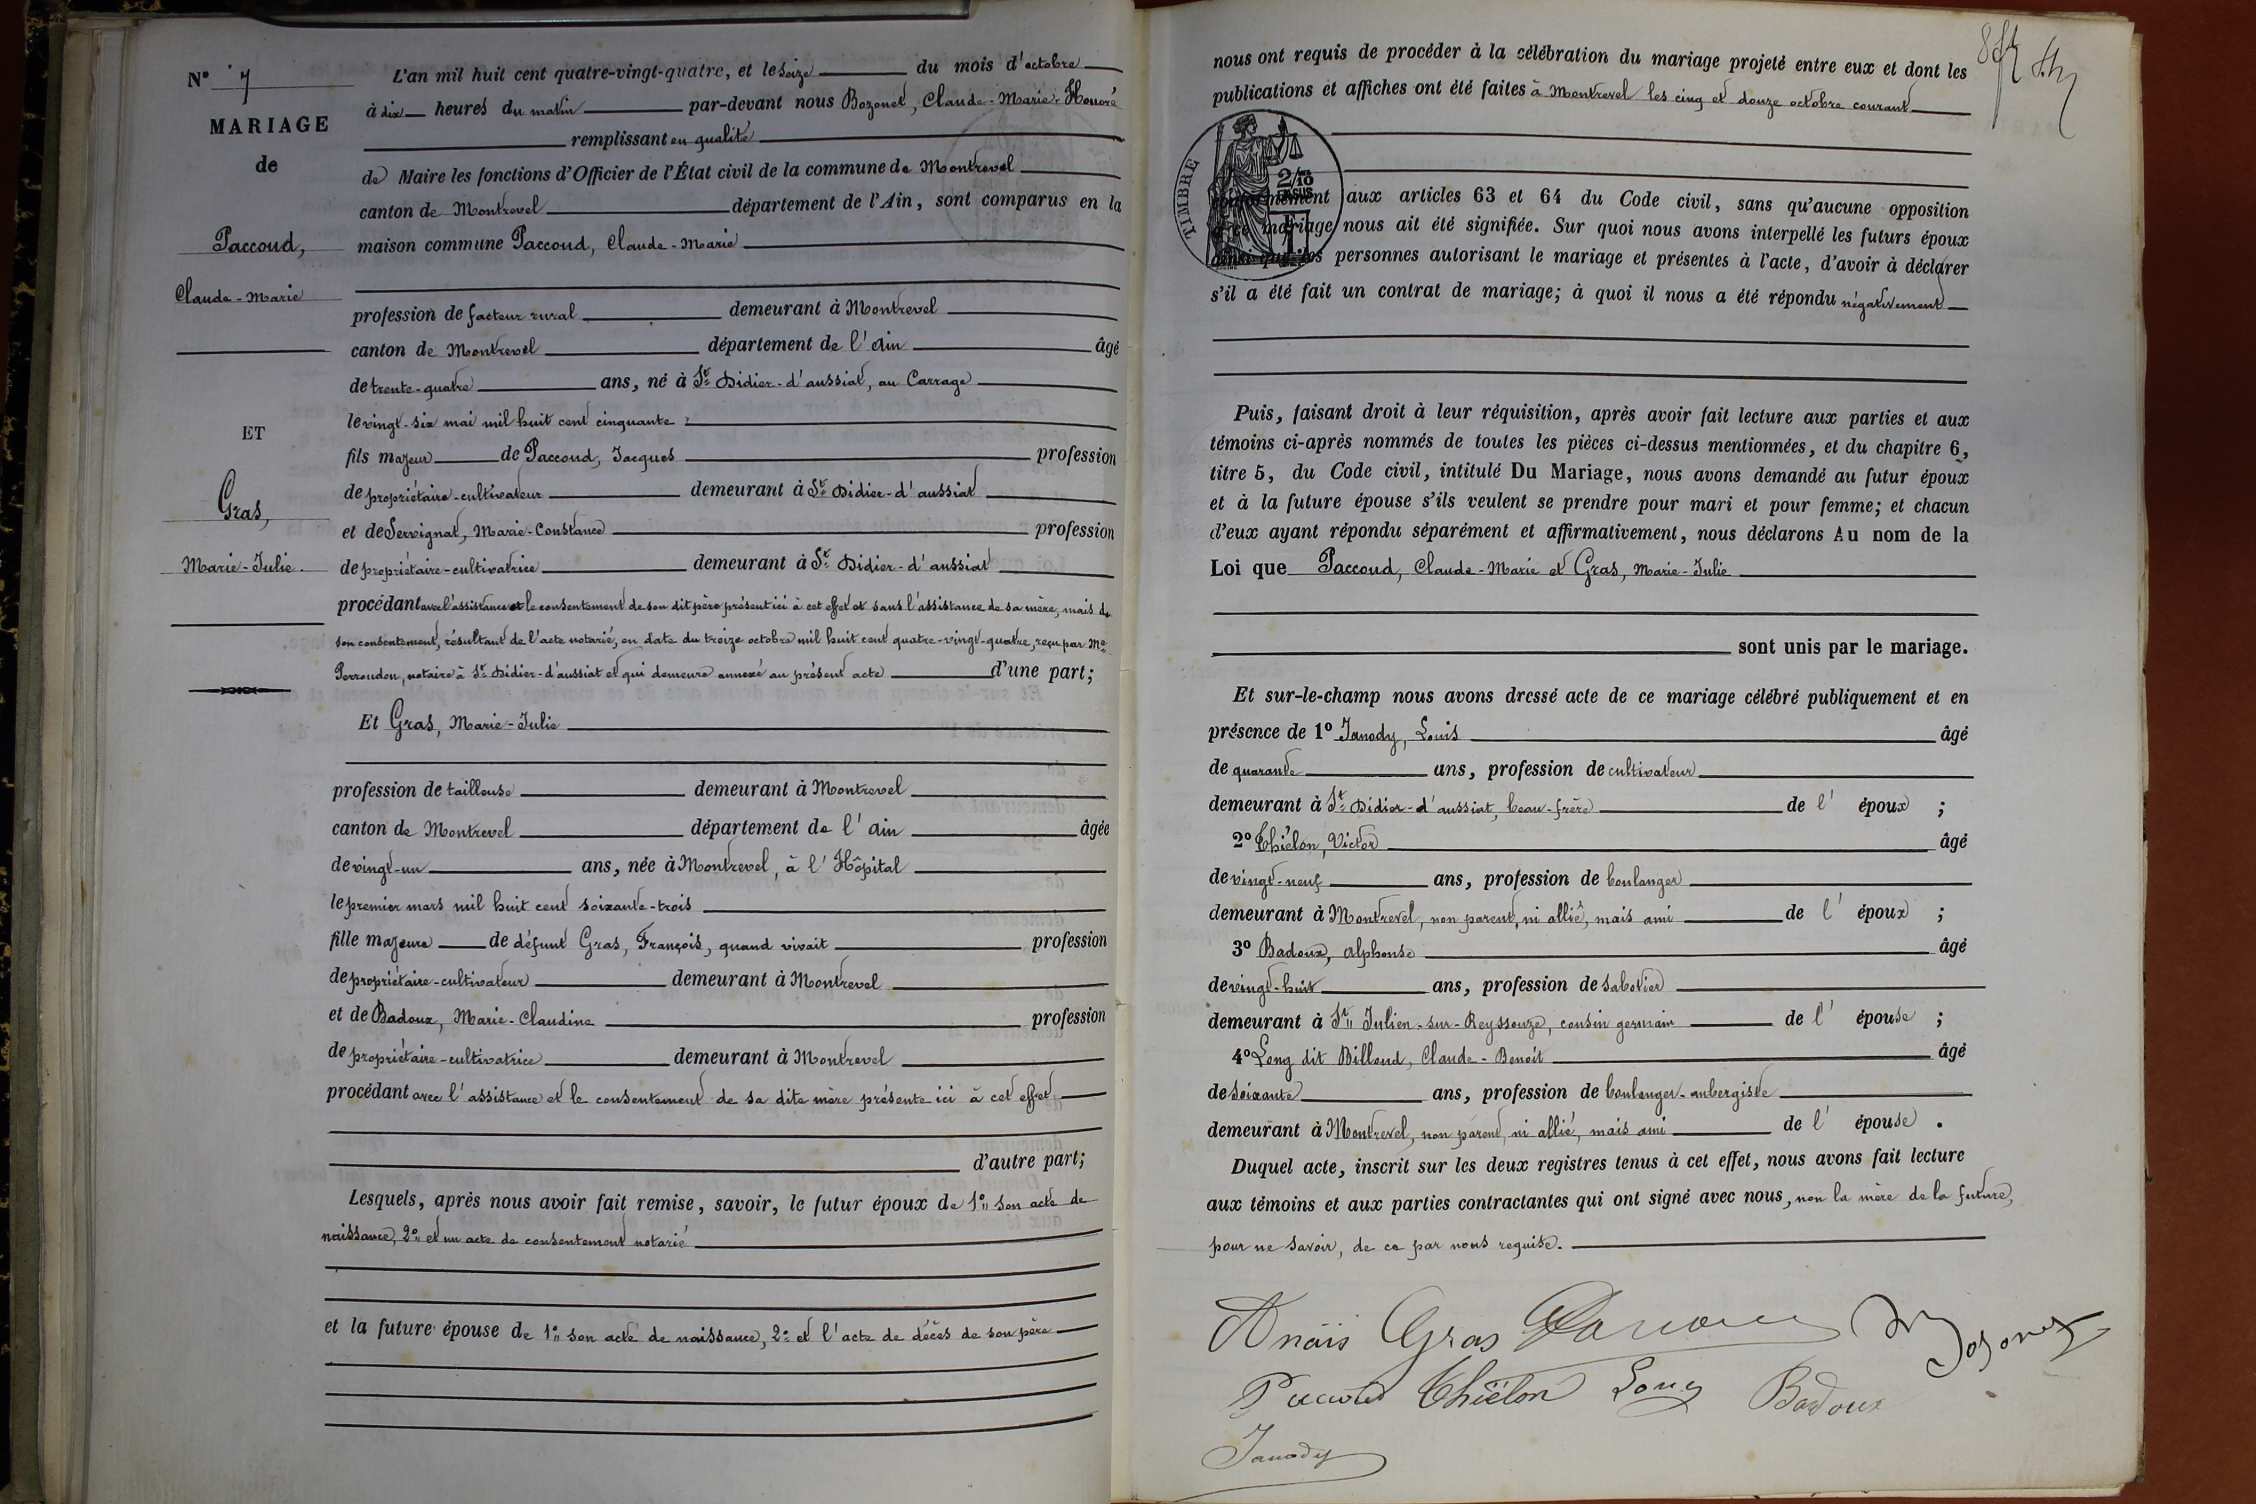 N° 7
MARIAGE
de
Paccoud,
Claude-Marie
ET
Gras,
Marie-Julie.
L'an mil huit cent quatre-vingt-quatre, et le seize du mois d'octobre
à dix heures du matin par-devant nous Bozonet, Claude-Marie-Honoré
remplissant en qualité
de Maire les fonctions d'Officier de l'État civil de la commune de Montrevel
canton de Montrevel département de l'Ain, sont comparus en la
maison commune Paccoud, Claude-Marie
profession de facteur rural demeurant à Montrevel
canton de Montrevel département de l'Ain âgé
de trente-quatre ans, né à St Didier-d'aussiat, au Carrage
le vingt-six mai mil huit cent cinquante
fils majeur de Paccoud, Jacques profession
de propriétaire-cultivateur demeurant à St Didier-d'aussiat
et de Servignat, Marie-Constance profession
de propriétaire-cultivatrice demeurant à St Didier-d'aussiat
procédant avec l'assistance et le consentement de son dit père présent ici à cet effet et sans l'assistance de sa mère, mais de
son consentement, résultant de l'acte notarié, en date du treize octobre mil huit cent quatre-vingt-quatre, reçu par Me
Perroudon, notaire à St Didier-d'aussiat et qui demeure annexé au présent acte d'une part;
Et Gras, Marie-Julie
profession de tailleuse demeurant à Montrevel
canton de Montrevel département de l'Ain âgée
de vingt-un ans, née à Montrevel, à l'Hôpital
le premier mars mil huit cent soixante-trois
fille majeure de défunt Gras, François, quand vivait profession
de propriétaire-cultivateur demeurant à Montrevel
et de Badoux, Marie-Claudine profession
de propriétaire-cultivatrice demeurant à Montrevel
procédant avec l'assistance et le consentement de sa dite mère présente ici à cet effet
d'autre part;
Lesquels, après nous avoir fait remise, savoir, le futur époux de 1° son acte de
naissance, 2° et un acte de consentement notarié
et la future épouse de 1° son acte de naissance, 2° et l'acte de décès de son père
nous ont requis de procéder à la célébration du mariage projeté entre eux et dont les
publications et affiches ont été faites à Montrevel les cinq et douze octobre courant
TIMBRE
2/10
EN SUS
conformément aux articles 63 et 64 du Code civil, sans qu'aucune opposition
à ce mariage nous ait été signifiée. Sur quoi nous avons interpellé les futurs époux
ainsi que les personnes autorisant le mariage et présentes à l'acte, d'avoir à déclarer
s'il a été fait un contrat de mariage; à quoi il nous a été répondu négativement
Puis, faisant droit à leur réquisition, après avoir fait lecture aux parties et aux
témoins ci-après nommés de toutes les pièces ci-dessus mentionnées, et du chapitre 6,
titre 5, du Code civil, intitulé Du Mariage, nous avons demandé au futur époux
et à la future épouse s'ils veulent se prendre pour mari et pour femme; et chacun
d'eux ayant répondu séparément et affirmativement, nous déclarons Au nom de la
Loi que Paccoud, Claude-Marie et Gras, Marie-Julie
sont unis par le mariage.
Et sur-le-champ nous avons dressé acte de ce mariage célébré publiquement et en
présence de 1° Janody, Louis âgé
de quarante ans, profession de cultivateur
demeurant à St Didier-d'aussiat, beau-frère de l'époux ;
2° Thiélon, Victor âgé
de vingt-neuf ans, profession de boulanger
demeurant à Montrevel, non parent, ni allié, mais ami de l'époux ;
3° Badoux, Alphonse âgé
de vingt-huit ans, profession de sabotier
demeurant à St Julien-sur-Reyssouze, cousin germain de l'épouse ;
4° Long dit Billoud, Claude-Benoît âgé
de soixante ans, profession de boulanger-aubergiste
demeurant à Montrevel, non parent, ni allié, mais ami de l'épouse .
Duquel acte, inscrit sur les deux registres tenus à cet effet, nous avons fait lecture
aux témoins et aux parties contractantes qui ont signé avec nous, non la mère de la future,
pour ne savoir, de ce par nous requise.
Anaïs Gras Bozonet
Paccoud Thiélon Long Badoux
Janody